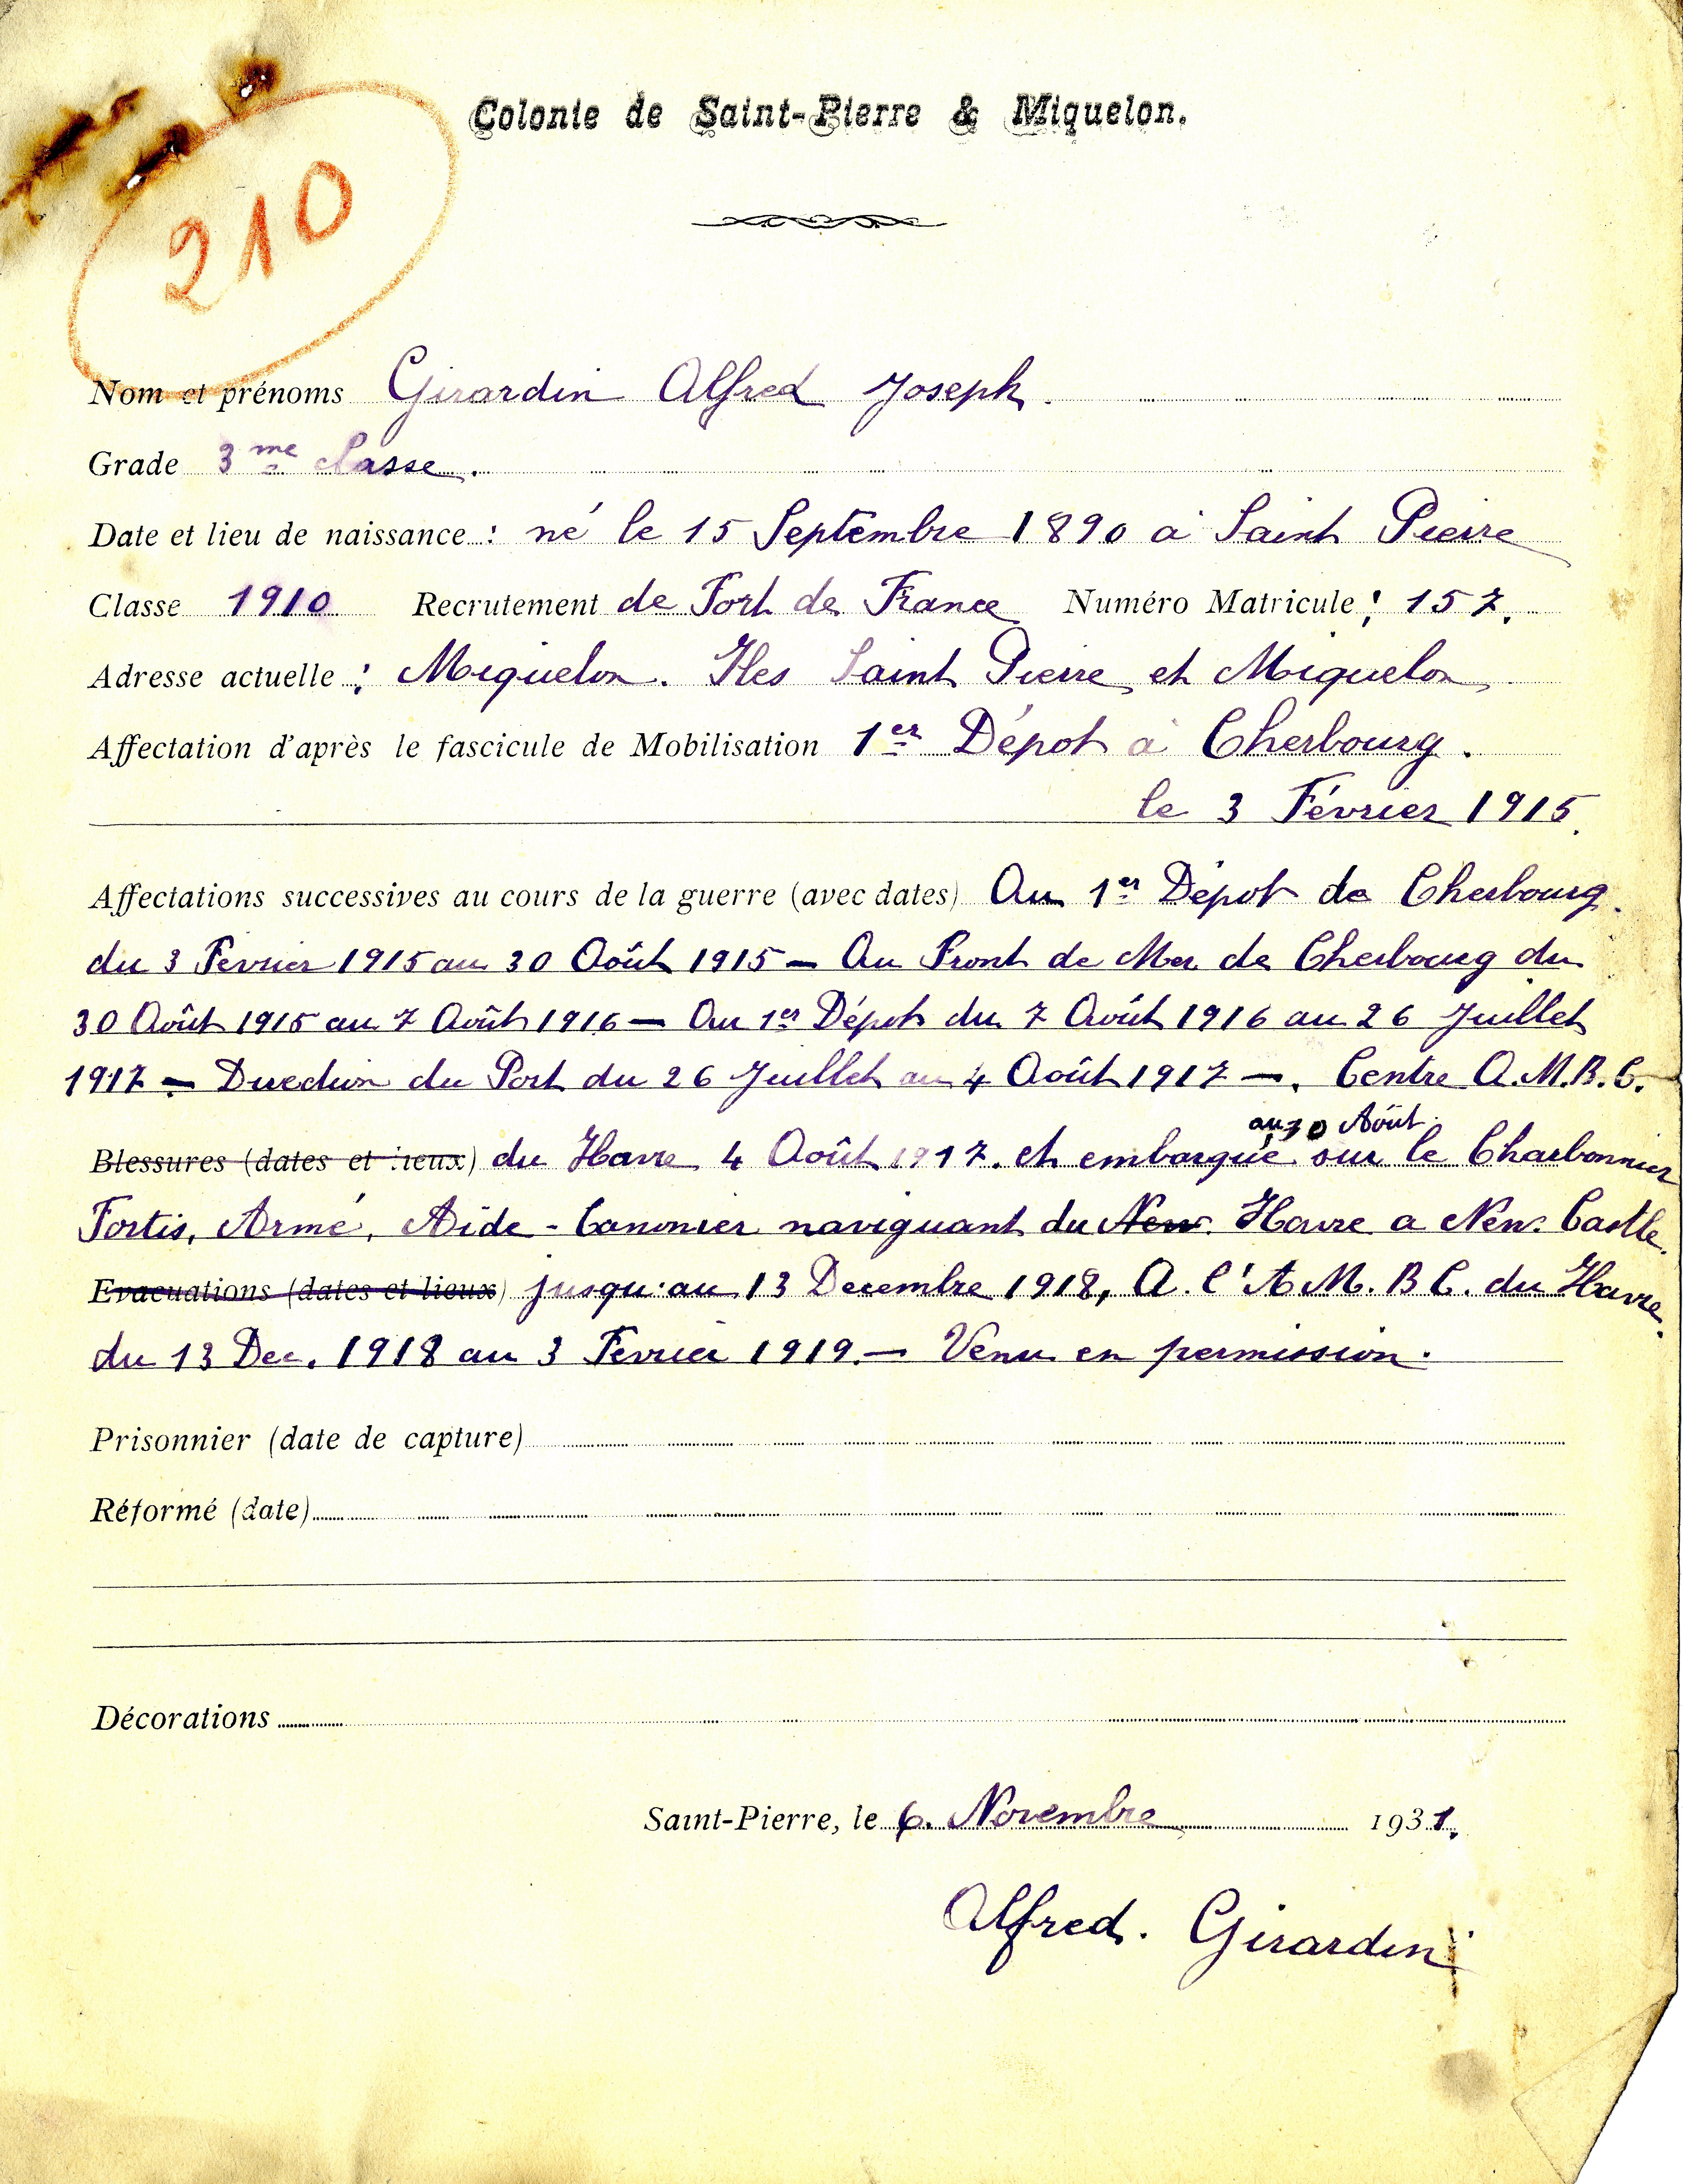 Colonie de Saint-Pierre & Miquelon.
210
Nom et prénoms Girardin Alfred Joseph.
Grade 3me classe.
Date et lieu de naissance : né le 15 Septembre 1890 a Saint Pierre
Classe 1910 Recrutement de Fort de France Numéro Matricule : 157.
Adresse actuelle : Miquelon. Iles Saint Pierre et Miquelon
Affectation d'après le fascicule de Mobilisation 1er Dépot à Cherbourg.
le 3 Février 1915.
Affectations successives au cours de la guerre (avec dates) Au 1er Dépot de Cherbourg.
du 3 Fevrier 1915 au 30 Août 1915 — Au Front de Mer de Cherbourg du
30 Août 1915 au 7 Août 1916 — Au 1er Dépot du 7 Août 1916 au 26 Juillet
1917 — Direction du Port du 26 Juillet au 4 Août 1917 —. Centre A.M.B.C.
au 30 Août
Blessures (dates et lieux) du Havre 4 Août 1917. et embarqué sur le Charbonnier
Fortis, Armé, Aide-Canonier naviguant du New. Havre a New. Castle.
Evacuations (dates et lieux) jusqu'au 13 Decembre 1918, A. l'A M. B C. du Havre.
du 13 Dec. 1918 au 3 Fevrier 1919. — Venu en permission.
Prisonnier (date de capture)
Réformé (date)
Décorations
Saint-Pierre, le 6. Novembre 1931.
Alfred. Girardin